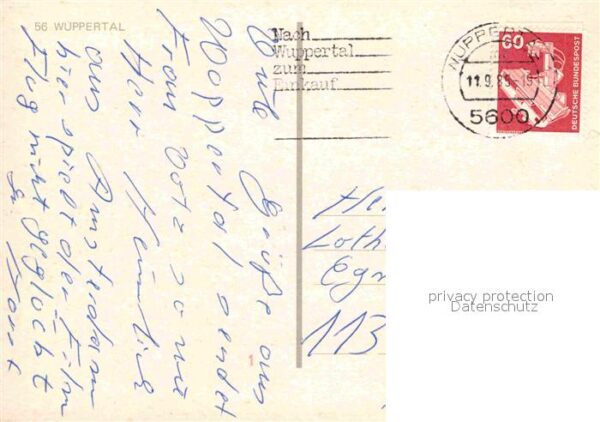 56 WUPPERTAL
Nach
Wuppertal
zum
Einkauf
WUPPERTAL
11.9.85-19
5600
60
DEUTSCHE BUNDESPOST
Grüße aus
Wuppertal sendet
Frau
Herr Heinrich
aus Amsterdam
hier spielt der Film
Flug nicht geglückt
Horst
He
Loth
Egn
113
privacy protection
Datenschutz